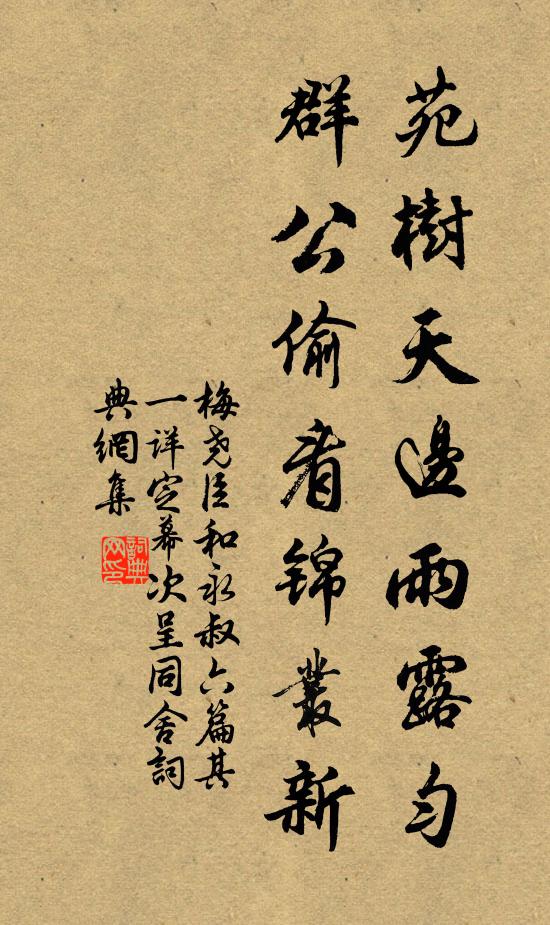 苑樹天邊雨露勻
群公偷看錦叢新
梅堯臣和永叔六篇其
一詳定幕次呈同舍詞
典網集
詞典
网印